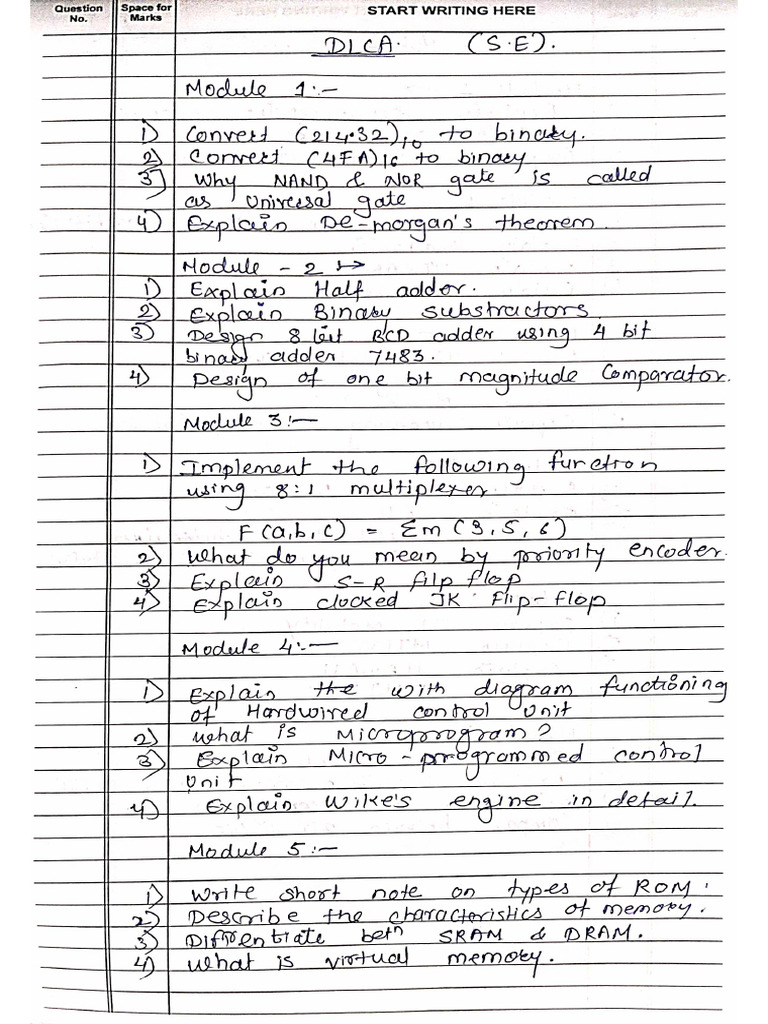 Question No. Space for Marks START WRITING HERE
DLCA. (S.E).
Module 1:-
1) Convert (214.32)10 to binary.
2) Convert (4FA)16 to binary
3) Why NAND & NOR gate is called
as Universal gate
4) Explain De-morgan's theorem.
Module - 2 →
1) Explain Half adder.
2) Explain Binary substractors.
3) Design 8 bit BCD adder using 4 bit
binary adder 7483.
4) Design of one bit magnitude Comparator.
Module 3:-
1) Implement the following function
using 8:1 multiplexer
F(a,b,c) = Σm (3,5,6)
2) What do you mean by priority encoder.
3) Explain S-R filp flop
4) Explain clocked JK flip-flop
Module 4:-
1) Explain the with diagram functioning
of Hardwired control Unit
2) What is Microprogram?
3) Explain Micro-programmed control
Unit
4) Explain Wilke's engine in detail.
Module 5:-
1) Write short note on types of ROM.
2) Describe the characteristics of memory.
3) Diffrentiate betn SRAM & DRAM.
4) What is virtual memory.